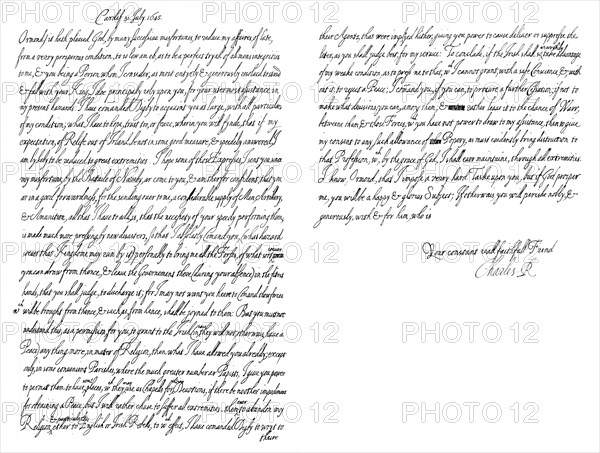 Cardif 31 July 1645.
Ormond, it hath pleased God, by many successive misfortunes, to reduce my affaires, of late,
from a very prosperous condition, to so low an eb, as to be a perfect tryall of all mens integrities
to me; & you being a Person whom I consider, as most entyrly & generously resolved to stand
& fall with your King, I doe principally rely upon you, for your utermost assistance, in
my present hazards: I have comanded Digby to acquaint you at large, with all particulars
of my condition; what I have to hope, trust too, or feare; wherin you will fynde, that if my
expectation, of Relife out of Irland be not in some good measure, & speedely answered, I
am lykely to be reduced to great extremities. I hope some of those Expresses I sent you since
my misfortune, by the Battaile of Nazeby, ar come to you, & am therfor confident, that you
ar in a good forwardness, for the sending over to me, a considerable suply of Men, Artillery,
& Amunition; all that I have to add is, that the necessity of your speedy performing them,
is made much more pressing by new disasters; so that I absolutly Comand you, (what hazard
soever that Kingdome may run by it) personally to bring me all the Forses, of what sort soever
you can draw from thence, & leave the Government there (during your absence) in the fittest
hands, that you shall judge, to discharge it; for I may not want you heere to Comand those forces
wch will be brought from thence, & such as from hence, shall be joyned to them: But you must not
understand this, as a permission for you, to grant to the Irish (in case they will not otherwais have a
Peace) any thing more, in mater of Religion, then what I have allowed you alreddy; except
only, in some convenient Parishes, where the much greater number ar Papists, I give you power
to permitt them to have some places, wch they may use as Chapells for theire Devotions, if there be no other impediment
for obtaining a Peace; but I will rather chuse to suffer all extremities, then ever to abandon my
Religion, & particularly ether to English or Irish Rebells, to wch effect, I have comanded Digby to wryt to
theire
their Agents, that were imployed hither, giving you power to cause deliver or suppresse the
letter, as you shall judge best, for my service: To conclude, if the Irish shall so unworthily take advantage
of my weake condition, as to press me to that, wch I cannot grant, with a safe Conscience, & with
out it, to reject a Peace; I comand you, if you can, to procure a further Cessation; if not, to
make what devisions you can, among them, & rather leave it to the chance of Warr,
betweene them, & those Forces, wch you have not power to draw to my assistance, then to give
my consent to any such allowance of Popery, as must evidently bring destruction to
that Profession, wch, by the grace of God, I shall ever maintaine, through all extremities:
I know, Ormond, that I impose a very hard Taske upon you, but if God prosper
me, you will be a happy & glorious Subject; if otherwais, you will perishe nobly, &
generously, with & for him, who is
Your constant reall faithfull Frend
Charles R
PHOTO 12